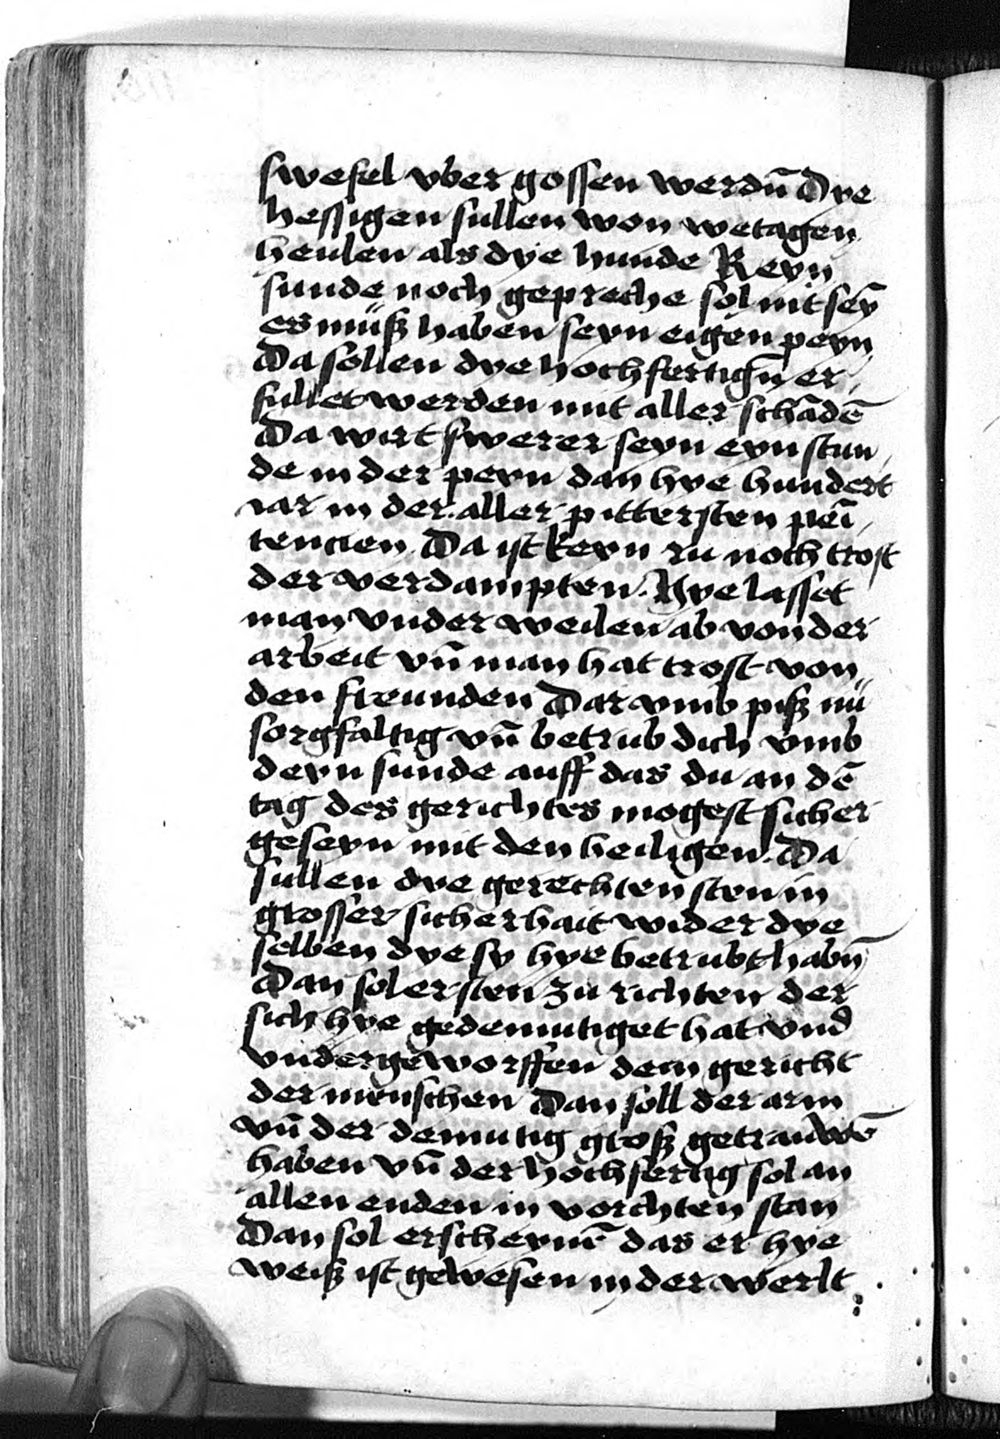 swefel vber gossen werdn̄ Dye
hessigen sullen won wetagen
heulen als dye hunde Keyn
sunde noch gepreche sol nit sey̅
es müß haben seyn eigen peyn
Da sollen dye hochfertign̄ er
fullet werden mit aller schadē
Da wirt swerer seyn eyn stun
de in der peyn dan hye hundert
iar in der aller pittersten peni
tencien Da ist keyn ru noch trost
der verdampten. Hye lasset
man vnder weilen ab von der
arbeit vn̄ man hat trost von
den freunden Dar vmb piß nu
sorgfaltig vn̄ betrub dich vmb
deyn sunde auff das du an dē
tag des gerichtes mogest sicher
geseyn mit den heiligen. Da
sullen dye gerechten sten in
grosser sicherhait wider dye
selben dye sy hye betrubt habn̄
Dan sol er sten zu richten der
sich hye gedemutiget hat vnd
vndergeworffen dem gericht
der menschen Dan soll der arm
vn̄ der demutig groß getrauwē
haben vn̄ der hochfertig sol an
allen enden in vorchten stan
Dan sol erscheynē das er hye
weiß ist gewesen in der werlt